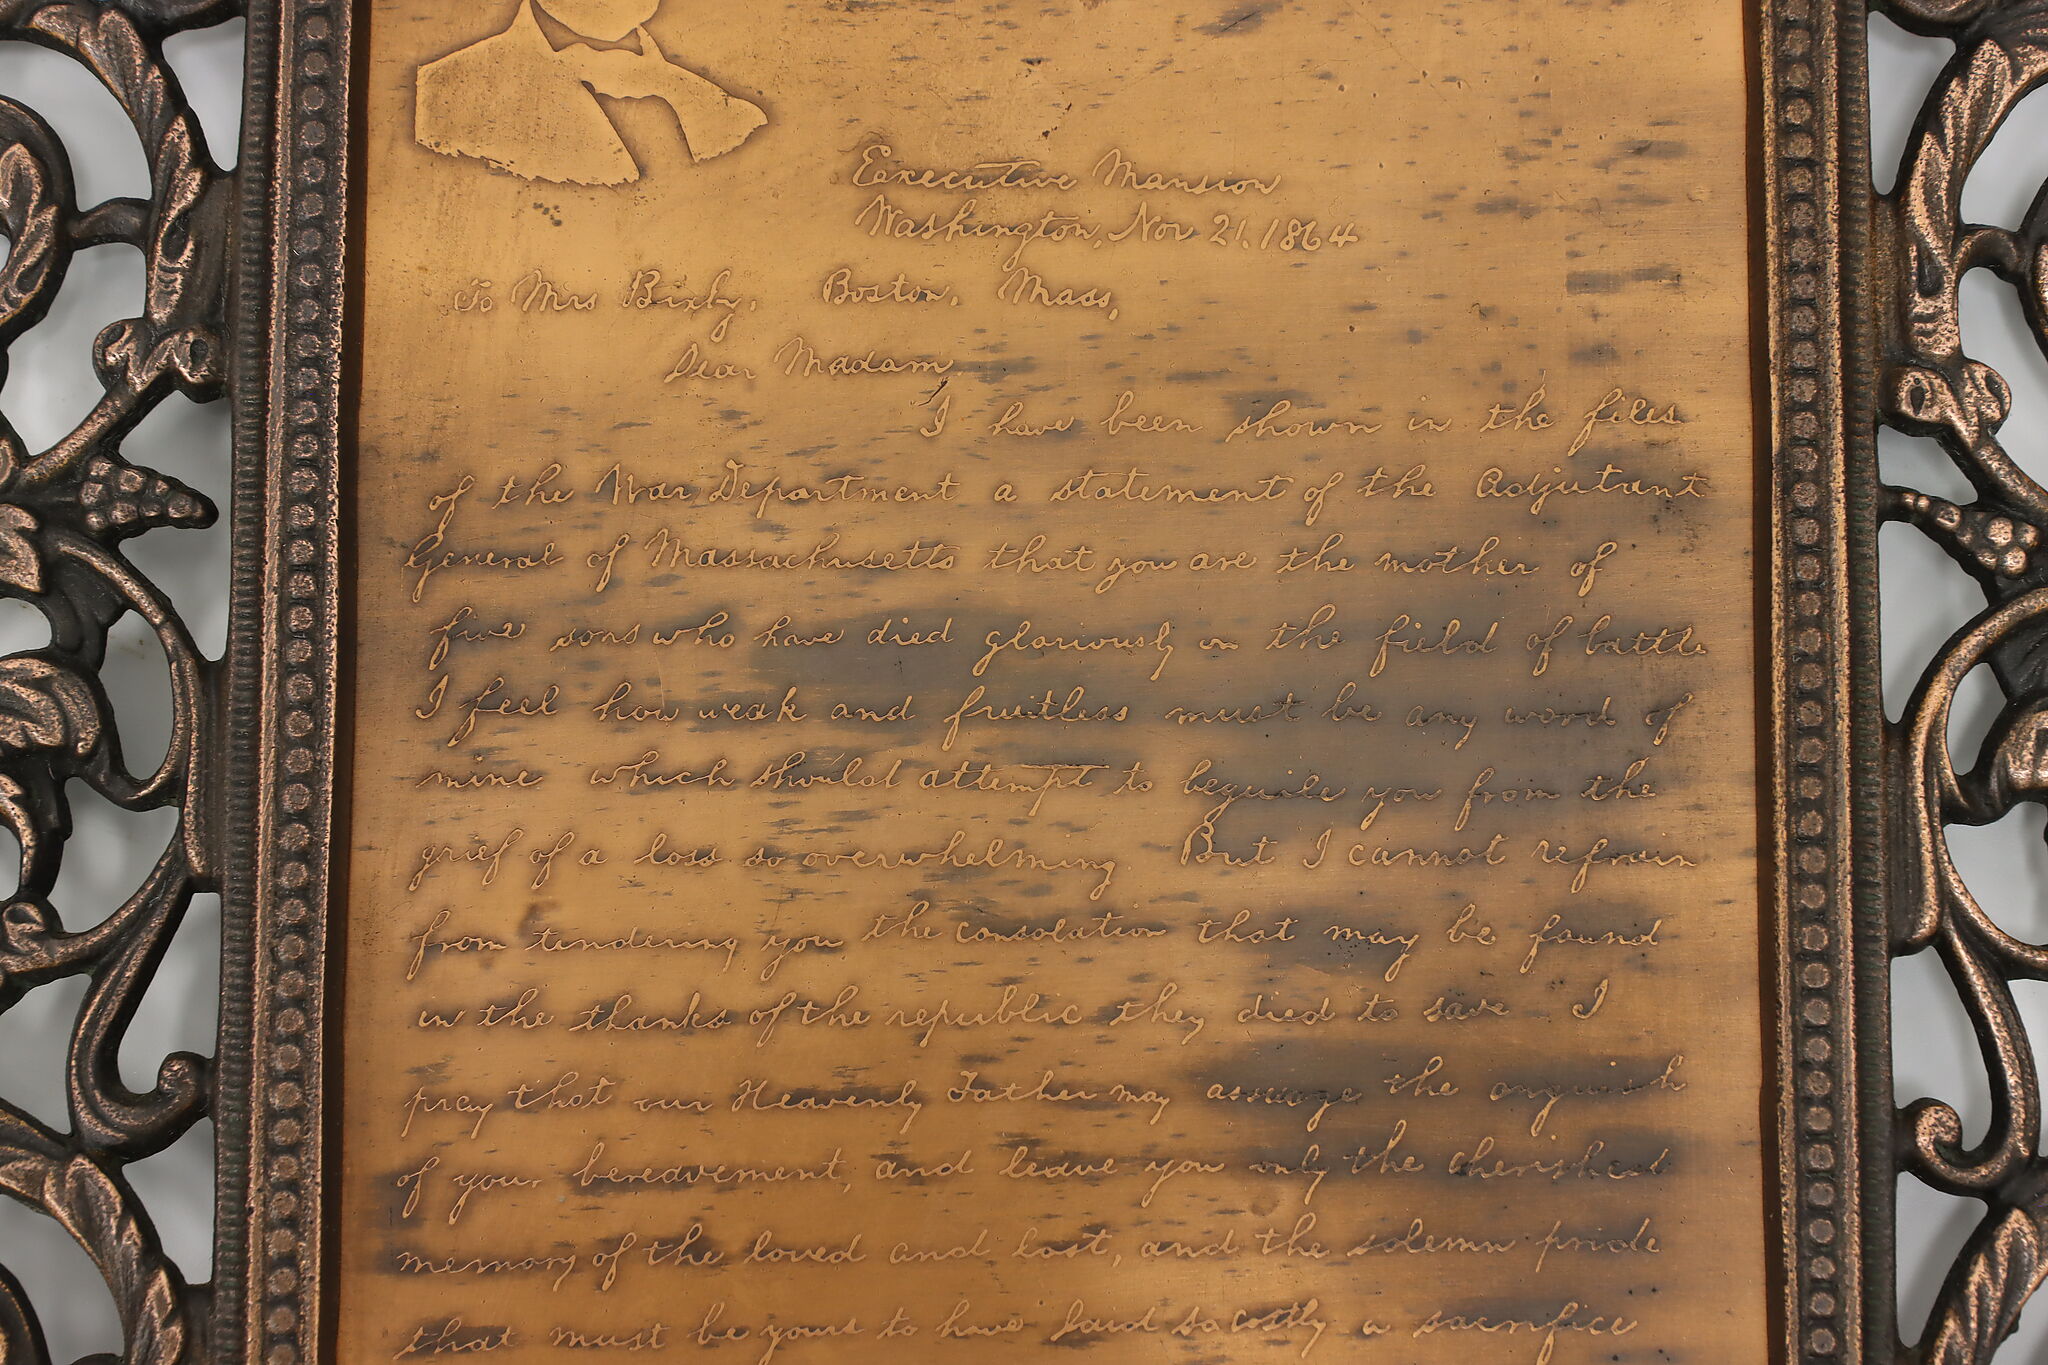 Executive Mansion
Washington, Nov 21, 1864
To Mrs Bixby, Boston, Mass,
Dear Madam,
I have been shown in the files
of the War Department a statement of the Adjutant
General of Massachusetts that you are the mother of
five sons who have died gloriously on the field of battle
I feel how weak and fruitless must be any word of
mine which should attempt to beguile you from the
grief of a loss so overwhelming. But I cannot refrain
from tendering you the consolation that may be found
in the thanks of the republic they died to save I
pray that our Heavenly Father may assuage the anguish
of your bereavement, and leave you only the cherished
memory of the loved and lost, and the solemn pride
that must be yours to have laid so costly a sacrifice